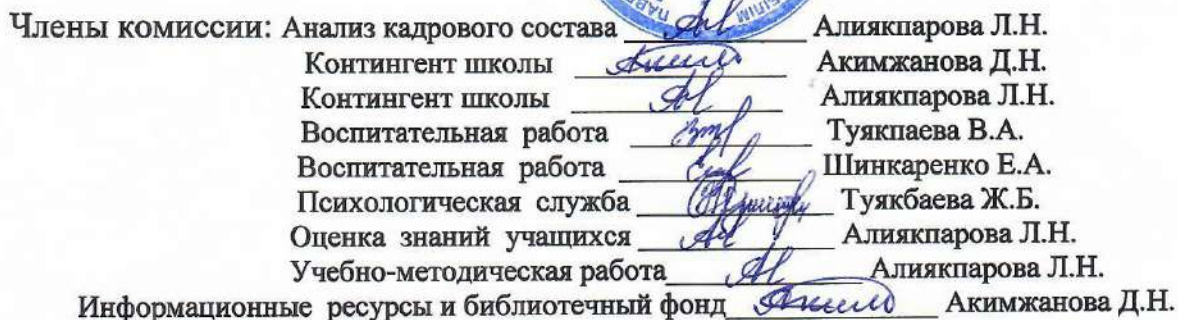 Члены комиссии: Анализ кадрового состава Алиякпарова Л.Н.
Контингент школы Акимжанова Д.Н.
Контингент школы Алиякпарова Л.Н.
Воспитательная работа Туякпаева В.А.
Воспитательная работа Шинкаренко Е.А.
Психологическая служба Туякбаева Ж.Б.
Оценка знаний учащихся Алиякпарова Л.Н.
Учебно-методическая работа Алиякпарова Л.Н.
Информационные ресурсы и библиотечный фонд Акимжанова Д.Н.